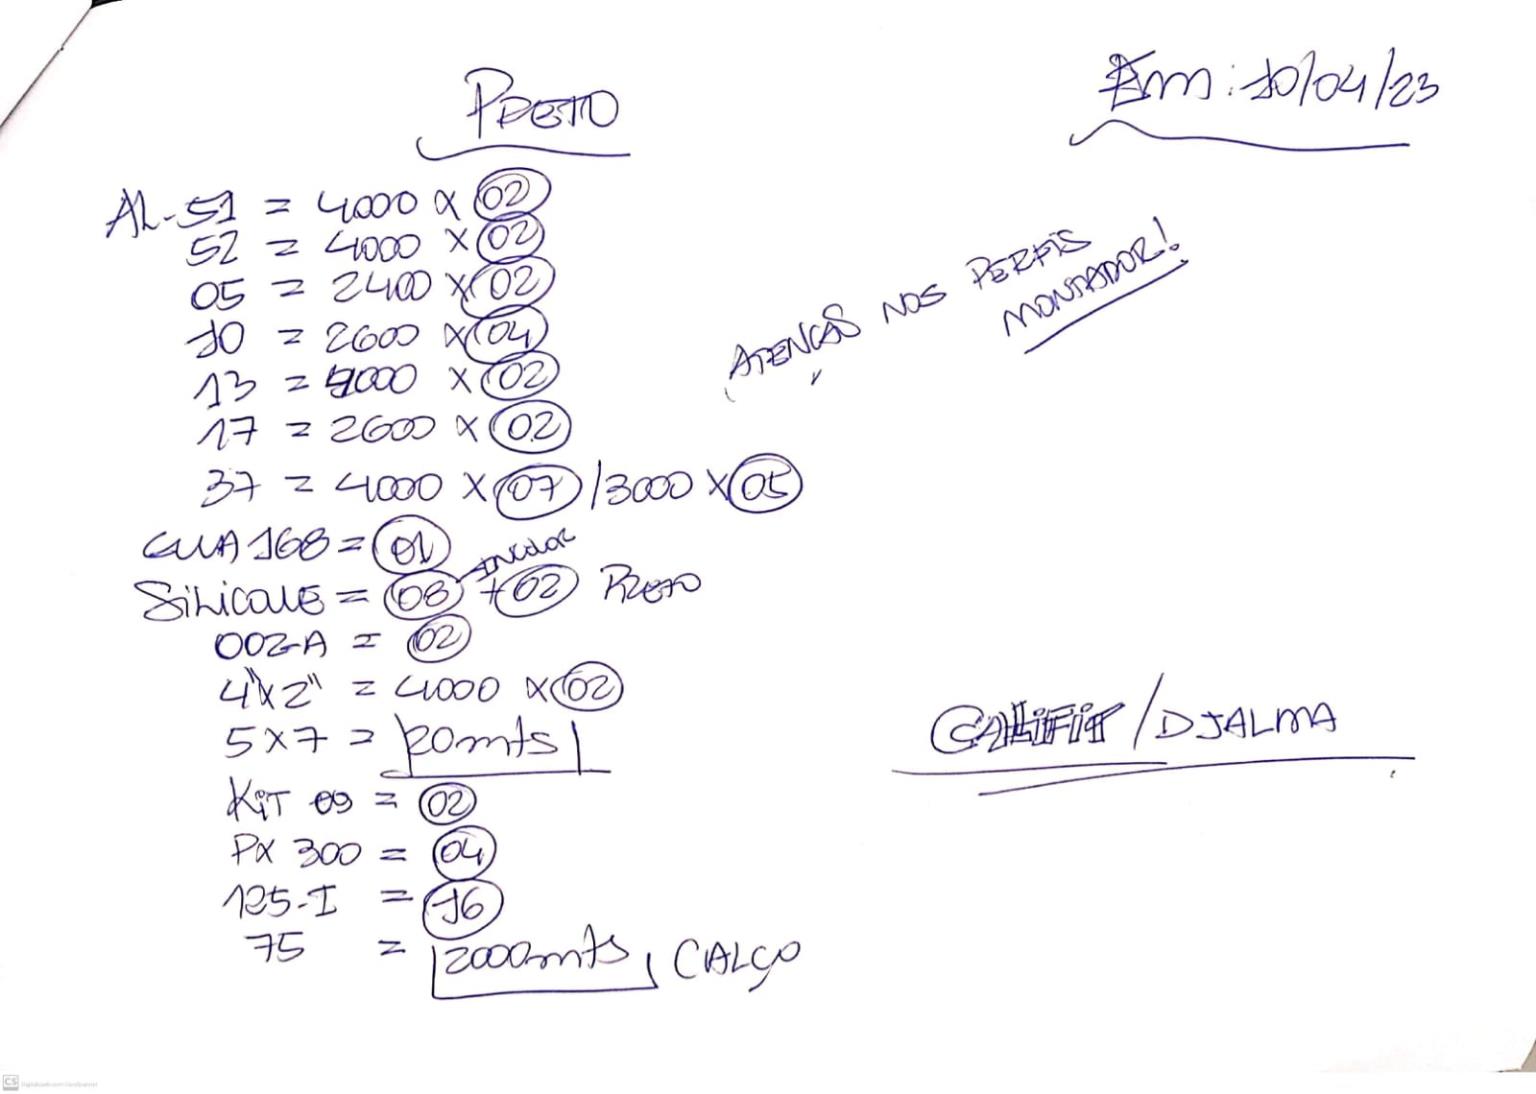 PRETO
Em: 10/04/23
AL-51 = 4000 x 02
52 = 4000 x 02
05 = 2400 x 02
10 = 2600 x 04
13 = 4000 x 02
17 = 2600 x 02
37 = 4000 x 07 / 3000 x 05
ATENÇÃO NOS PERFIS
MONTADOR!
GUIA 168 = 01
INCOLOR
SILICONE = 08 + 02 PRETO
002-A = 02
4"x2" = 4000 x 02
5x7 = 20mts
KIT 09 = 02
PX 300 = 04
125-I = 16
75 = 2000mts CALÇO
CALIFIT / DJALMA
CS